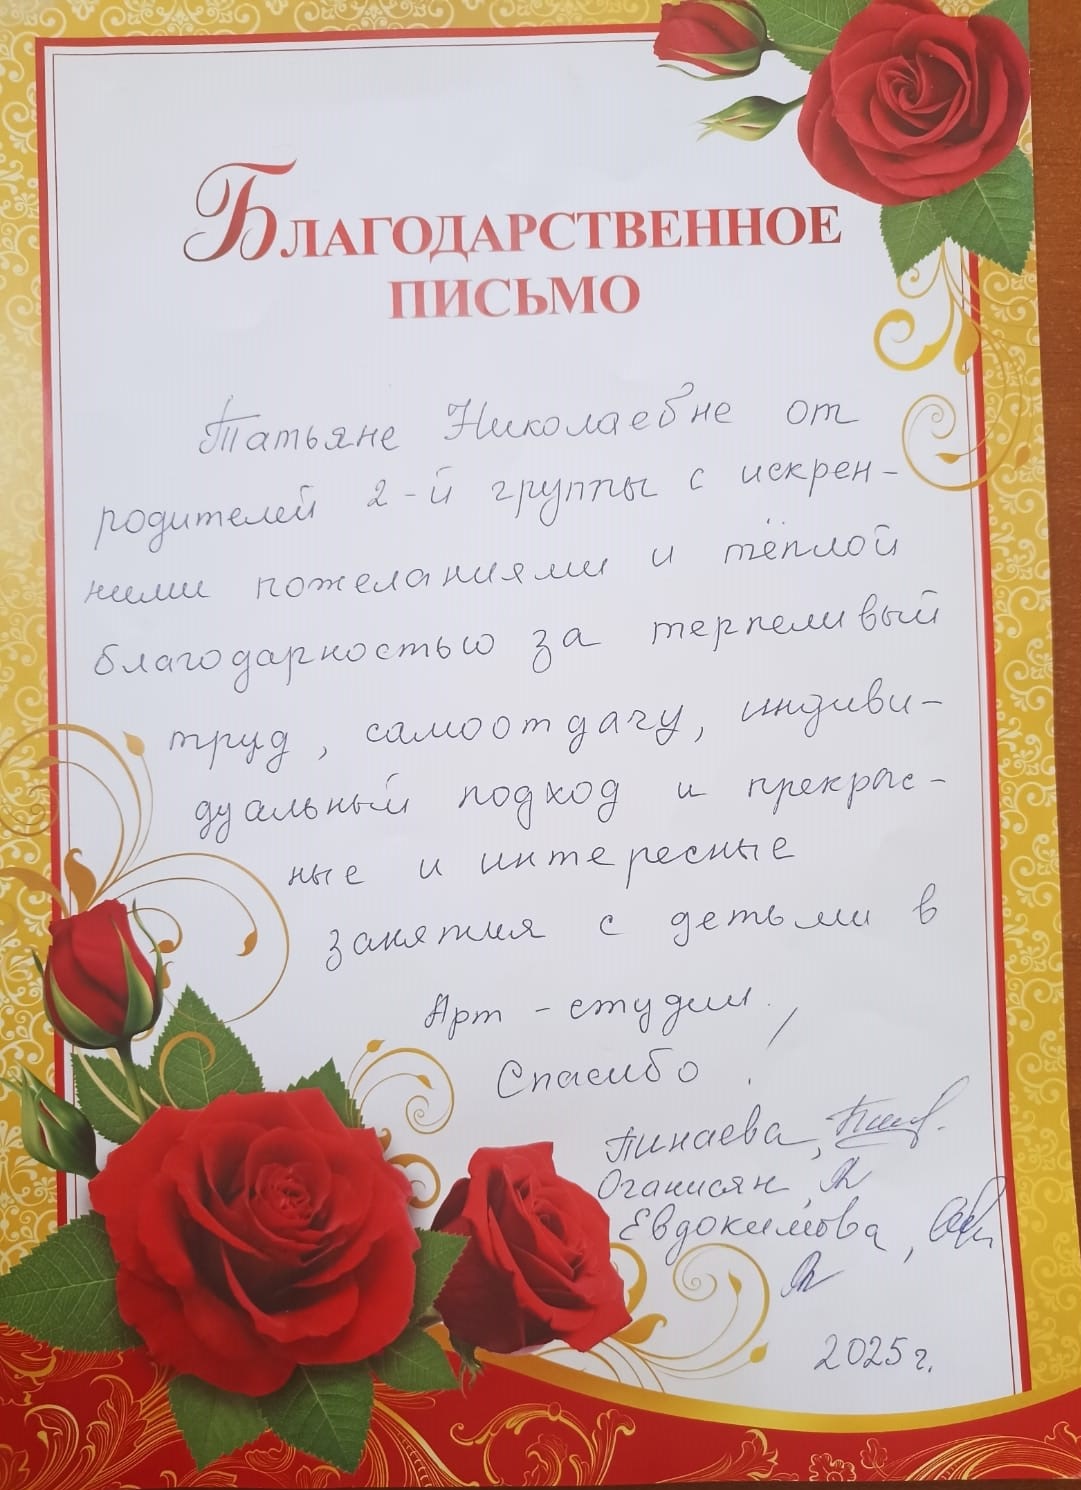 БЛАГОДАРСТВЕННОЕ
ПИСЬМО
Татьяне Николаевне от
родителей 2-й группы с искрен-
ними пожеланиями и тёплой
благодарностью за терпеливый
труд, самоотдачу, индиви-
дуальный подход и прекрас-
ные и интересные
занятия с детьми в
Арт-студии.
Спасибо!
Пинаева,
Оганисян,
Евдокимова,
2025 г.